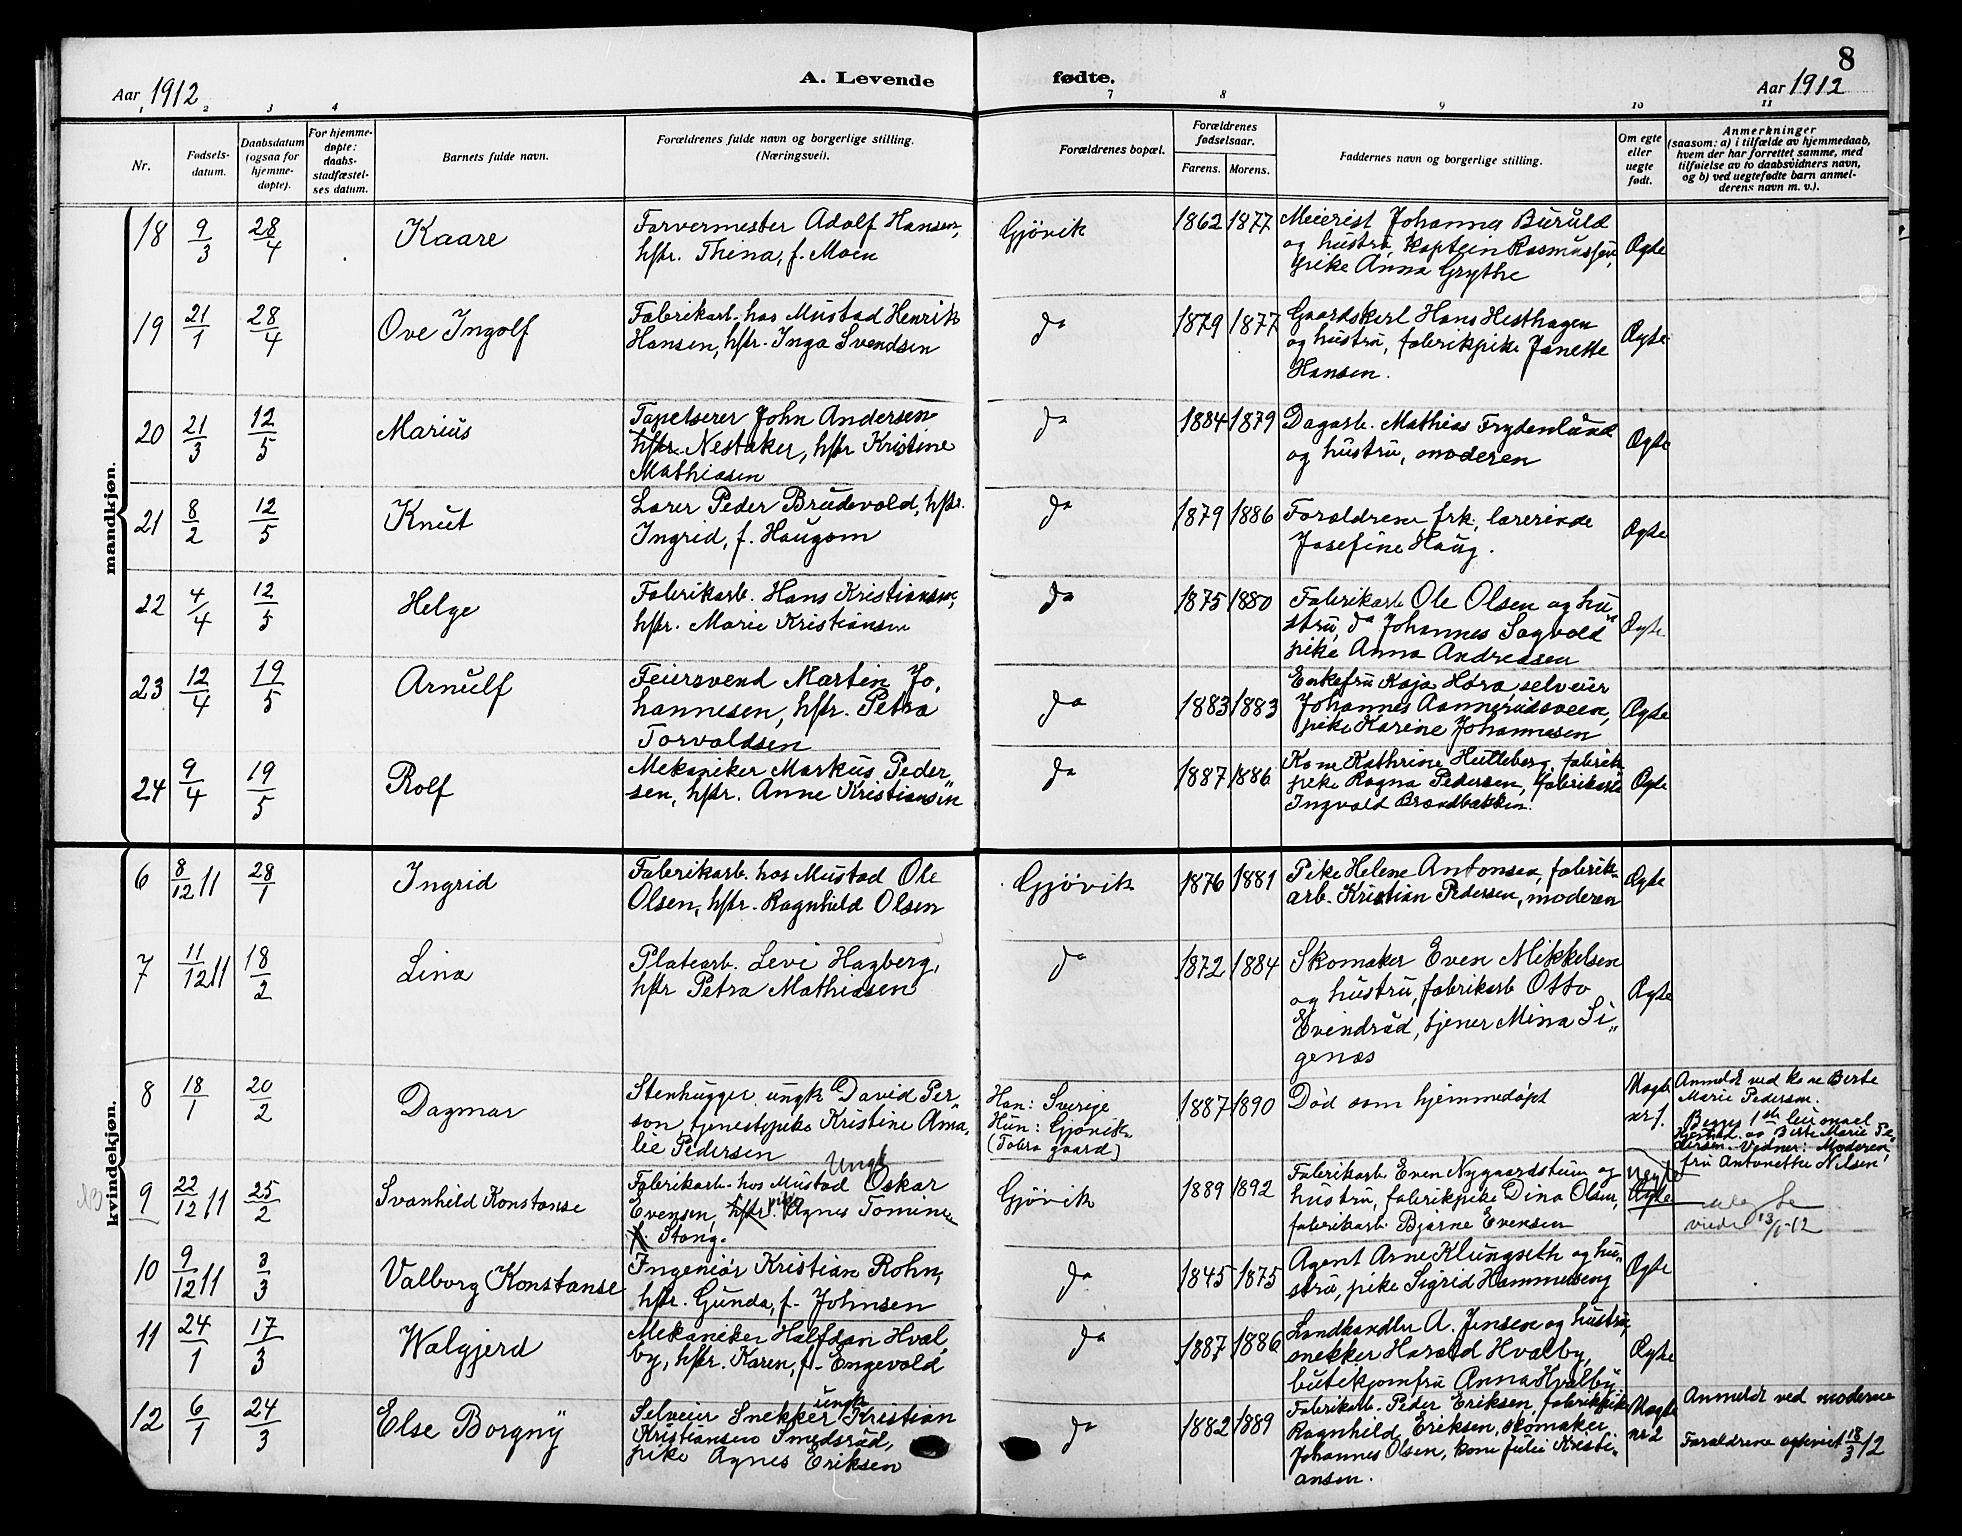 8
Aar 1912
A. Levende
fødte.
Aar 1912
1 2 3 4 7 8 9 10 11
Nr.
Fødsels-
datum.
Daabsdatum
(ogsaa for
hjemme-
døpte).
For hjemme-
døpte:
daabs-
stadfæstel-
ses datum.
Barnets fulde navn.
Forældrenes fulde navn og borgerlige stilling.
(Næringsvei).
Forældrenes bopæl.
Forældrenes
fødselsaar.
Farens. Morens.
Faddernes navn og borgerlige stilling.
Om egte
eller
uegte
født.
Anmerkninger
(saasom: a) i tilfælde av hjemmedaab,
hvem der har forrettet samme, med
tilføielse av to daabsvidners navn,
og b) ved uegtefødte barn anmel-
derens navn m. v.).
mandkjøn.
18 9/3 28/4 Kaare
Farvermester Adolf Hansen,
hstr. Thina, f. Moen
Gjövik 1862 1877
Meierist Johanna Buruld
og hustru, kaptein Rasmussen,
pike Anna Grythe
Ægte
19 21/1 28/4 Ove Ingolf
Fabrikarb. hos Mustad Henrik
Hansen, hstr. Inga Svendsen
do 1879 1877
Gaardskarl Hans Hesthagen
og hustru, fabrikpike Janette
Hansen.
Ægte
20 21/3 12/5 Marius
Tapetserer John Andersen
hstr. Nestaker, hstr Kristine
Mathiasen
do 1884 1879
Dagarb. Mathias Frydenlund
og hustru, moderen
Ægte
21 8/2 12/5 Knut
Lærer Peder Brudevold, hstr.
Ingrid, f. Haugom
do 1879 1886
Forældrene, frk. lærerinde
Josefine Haug.
Ægte
22 4/4 12/5 Helge
Fabrikarb. Hans Kristiansen,
hstr. Marie Kristiansen
do 1875 1880
Fabrikarb Ole Olsen og hu-
stru, do Johannes Sagvold
pike Anna Andreasen
Ægte
23 12/4 19/5 Arnulf
Feiersvend Martin Jo-
hannesen, hstr. Petra
Torvaldsen
do 1883 1883
Enkefru Kaja Høra, selveier
Johannes Aannerudsveen,
pike Karine Johannesen
Ægte
24 9/4 19/5 Rolf
Mekaniker Markus Peder-
sen, hstr. Anne Kristiansen
do 1887 1886
Kone Kathrine Hutleberg, fabrik
pike Ragna Pedersen, fabrikarb
Ingvald Brændbakken.
Ægte
kvindekjøn.
6 8/12 11 28/1 Ingrid
Fabrikarb. hos Mustad Ole
Olsen, hstr. Ragnhild Olsen
Gjövik 1876 1881
Pike Helene Antonsen, fabrik-
arb. Kristian Pedersen, moderen
Ægte
7 11/12 11 18/2 Lina
Platearb. Levi Hagberg,
hstr Petra Mathiasen
do 1872 1884
Skomaker Even Mikkelsen
og hustru, fabrikarb Otto
Evindrud, tjener Mina Si-
genæs
Ægte
8 18/1 20/2 Dagmar
Stenhugger, ungk David Per-
son, tjenestepike Kristine Ama-
lie Pedersen
Han: Sverige
Hun: Gjövik
gaard)
1887 1890
Død som hjemmedøpt
Uægte
nr 1.
Anmeldt ved kone Berte
Marie Pedersen.
Begges 1ste leiermaal
Berte Marie Pe-
dersen. Vidner: Moderen,
fru Antonette Nilsen
13
9 22/12 11 25/2 Svanhild Konstanse
Ungk
Fabrikarb. hos Mustad Oskar
Evensen, hstr. pike Agnes Tomine
f. Stang.
Gjövik 1889 1892
Fabrikarb Even Nygaardstuen og
hustru, fabrikpike Dina Olsen,
fabrikarb. Bjarne Evensen
Uegte
Ægte
viede 13/1-12
10 9/12 11 3/3 Valborg Konstanse
Ingeniør Kristian Rohn,
hstr. Gunda, f. Johnsen
do 1845 1875
Agent Arne Klungseth og hu-
stru, pike Sigrid Hammerseng
Ægte
11 24/1 17/3 Walgjerd
Mekaniker Halfdan Hval-
by, hstr. Karen, f. Engevold
do 1887 1886
Landhandler A. Jensen og hustru,
snekker Harald Hvalby,
butikjomfru Anna Hvalby.
Ægte
12 6/1 24/3 Else Borgny
ungk
Selveier Snekker Kristian
Kristiansen Smedsrud,
pike Agnes Eriksen
do 1882 1889
Fabrikarb. Peder Eriksen, fabrikpike
Ragnhild Eriksen, skomaker
Johannes Olsen, kone Julie Kristi-
ansen.
Uægte
nr 2
Anmeldt ved moderen
Forældrene egteviet 18/3 12